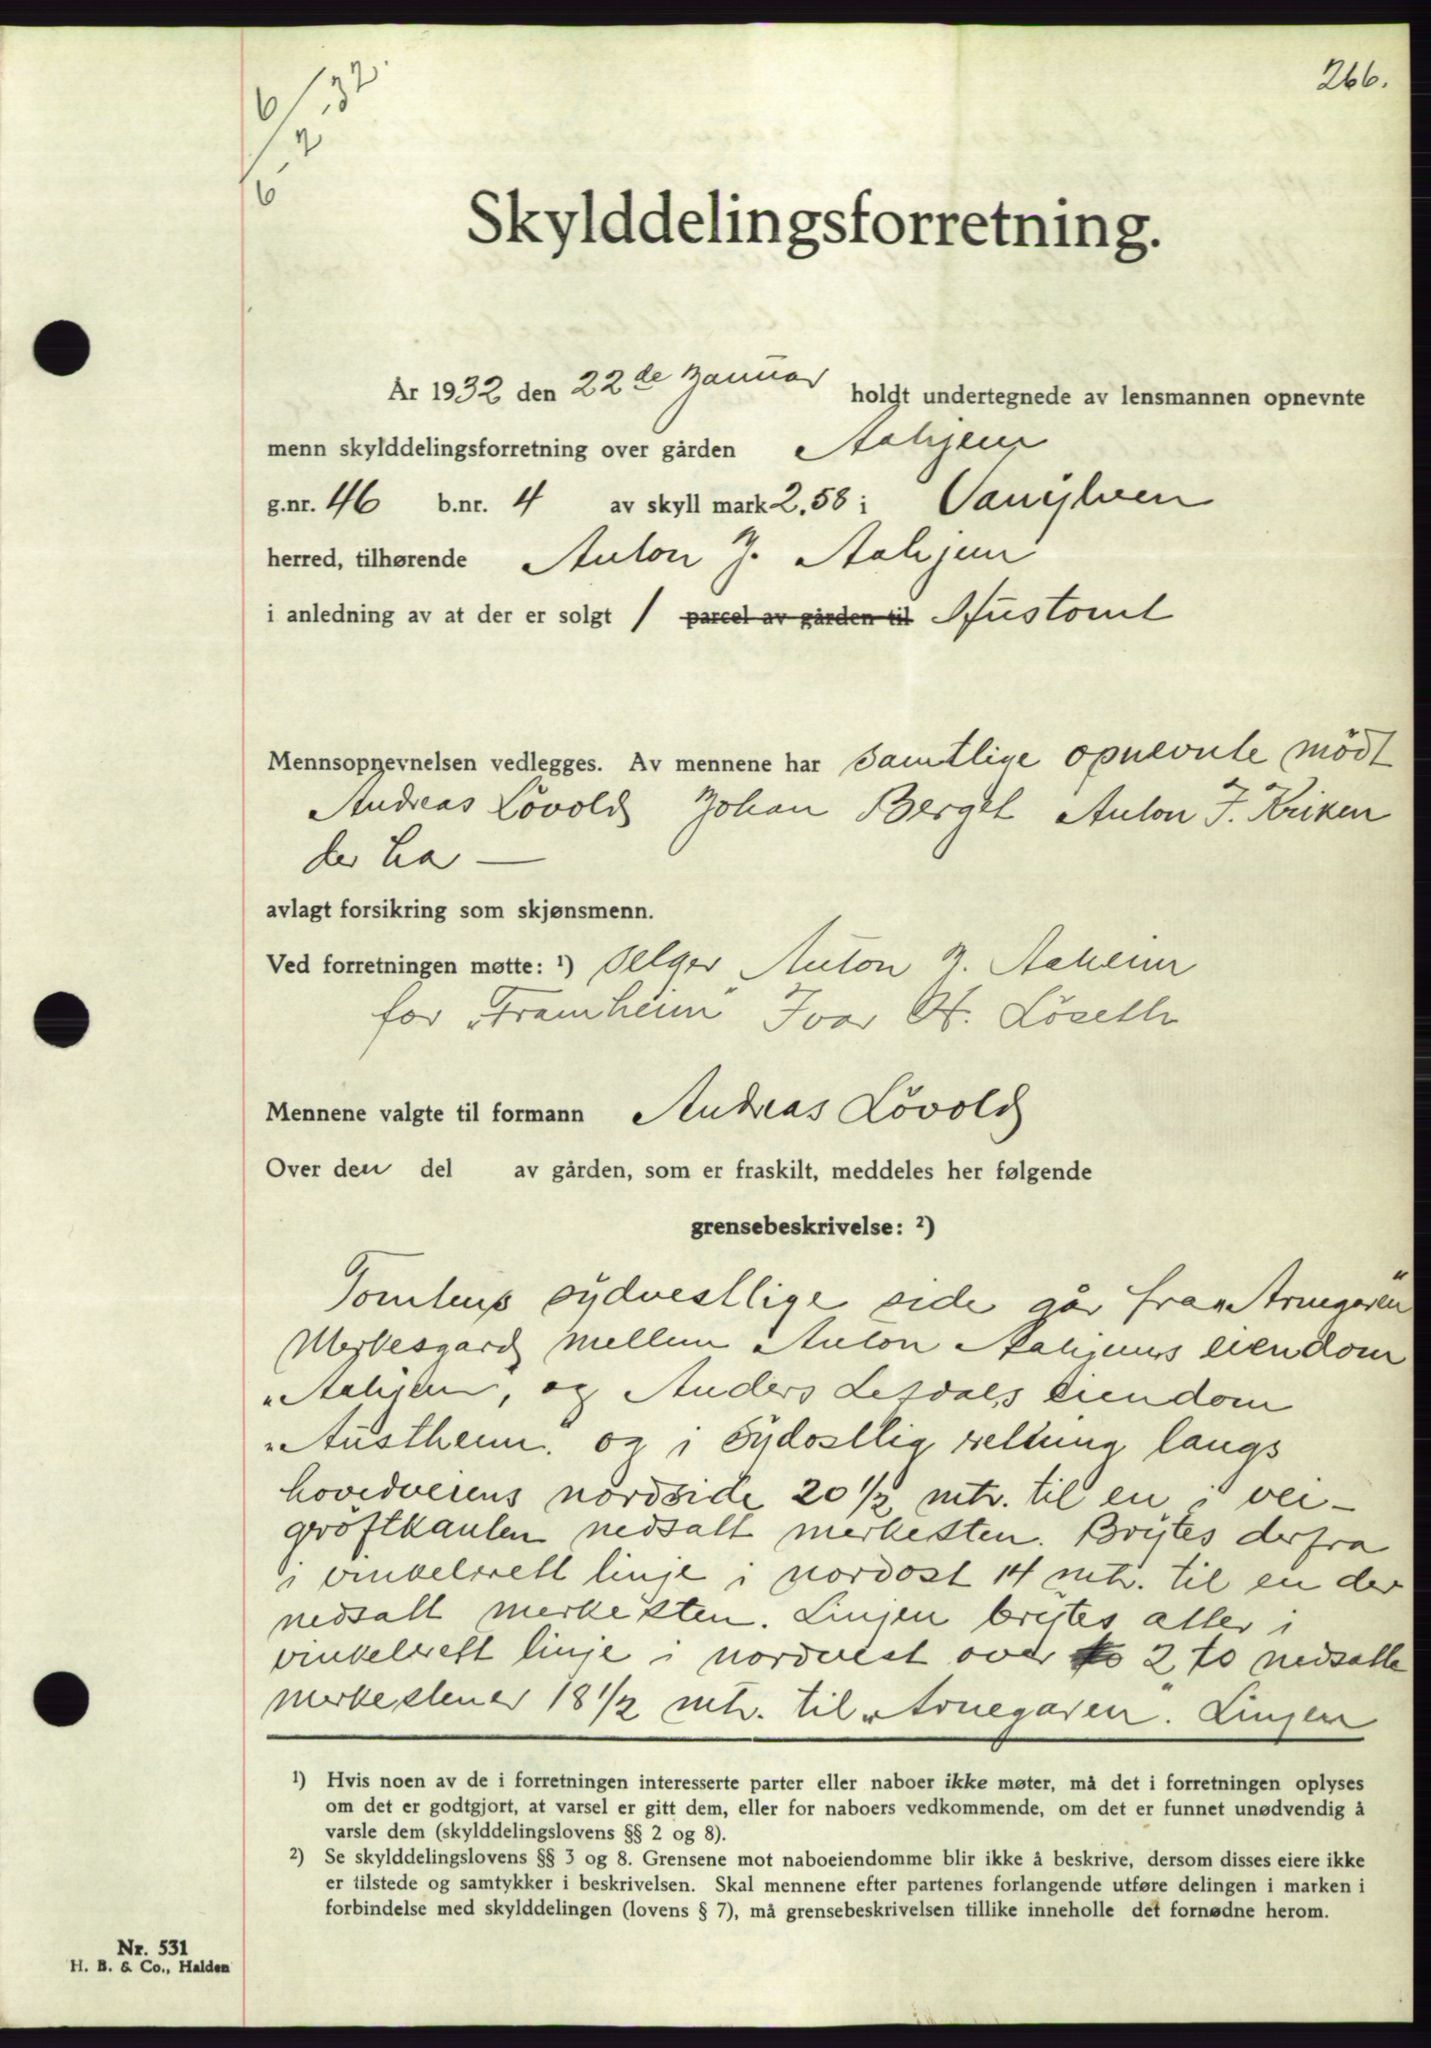 266.
6/32.
2
6
Skylddelingsforretning.
År 1932 den 22de Januar holdt undertegnede av lensmannen opnevnte
menn skylddelingsforretning over gården Aahjem
g.nr. 46 b.nr. 4 av skyll mark 2.58 i Vanylven
herred, tilhørende Anton J. Aahjem
i anledning av at der er solgt 1 parcel av gården til Hustomt
Mennsopnevnelsen vedlegges. Av mennene har samtlige opnevnte mödt
Andreas Lövold Johan Berget Anton J. Kriken
der ha —
avlagt forsikring som skjønsmenn.
Ved forretningen møtte: ¹) Selger Anton J. Aaheim
for „Framheim" Ivar H. Löseth
Mennene valgte til formann Andreas Lövold
Over den del av gården, som er fraskilt, meddeles her følgende
grensebeskrivelse: ²)
Tomtens sydvestlige side går fra „Arnegaren"
Merkesgard mellem Anton Aahjems eiendom
„Aahjem", og Anders eiendom
„Austheim." og i sydostlig retting langs
hovedveiens nordside 20 1/2 mtr. til en i vei-
gröftkanten nedsatt merkesten. Brytes derfra
i vinkelrett linje i nordost 14 mtr. til en der
nedsatt merkesten. Linjen brytes atter i
vinkelrett linje i nordvest over to 2 to nedsatte
merkestener 18 1/2 mtr. til „Arnegaren". Linjen
¹) Hvis noen av de i forretningen interesserte parter eller naboer ikke møter, må det i forretningen oplyses
om det er godtgjort, at varsel er gitt dem, eller for naboers vedkommende, om det er funnet unødvendig å
varsle dem (skylddelingslovens §§ 2 og 8).
²) Se skylddelingslovens §§ 3 og 8. Grensene mot naboeiendomme blir ikke å beskrive, dersom disses eiere ikke
er tilstede og samtykker i beskrivelsen. Skal mennene efter partenes forlangende utføre delingen i marken i
forbindelse med skylddelingen (lovens § 7), må grensebeskrivelsen tillike inneholle det fornødne herom.
Nr. 531
H. B. & Co., Halden